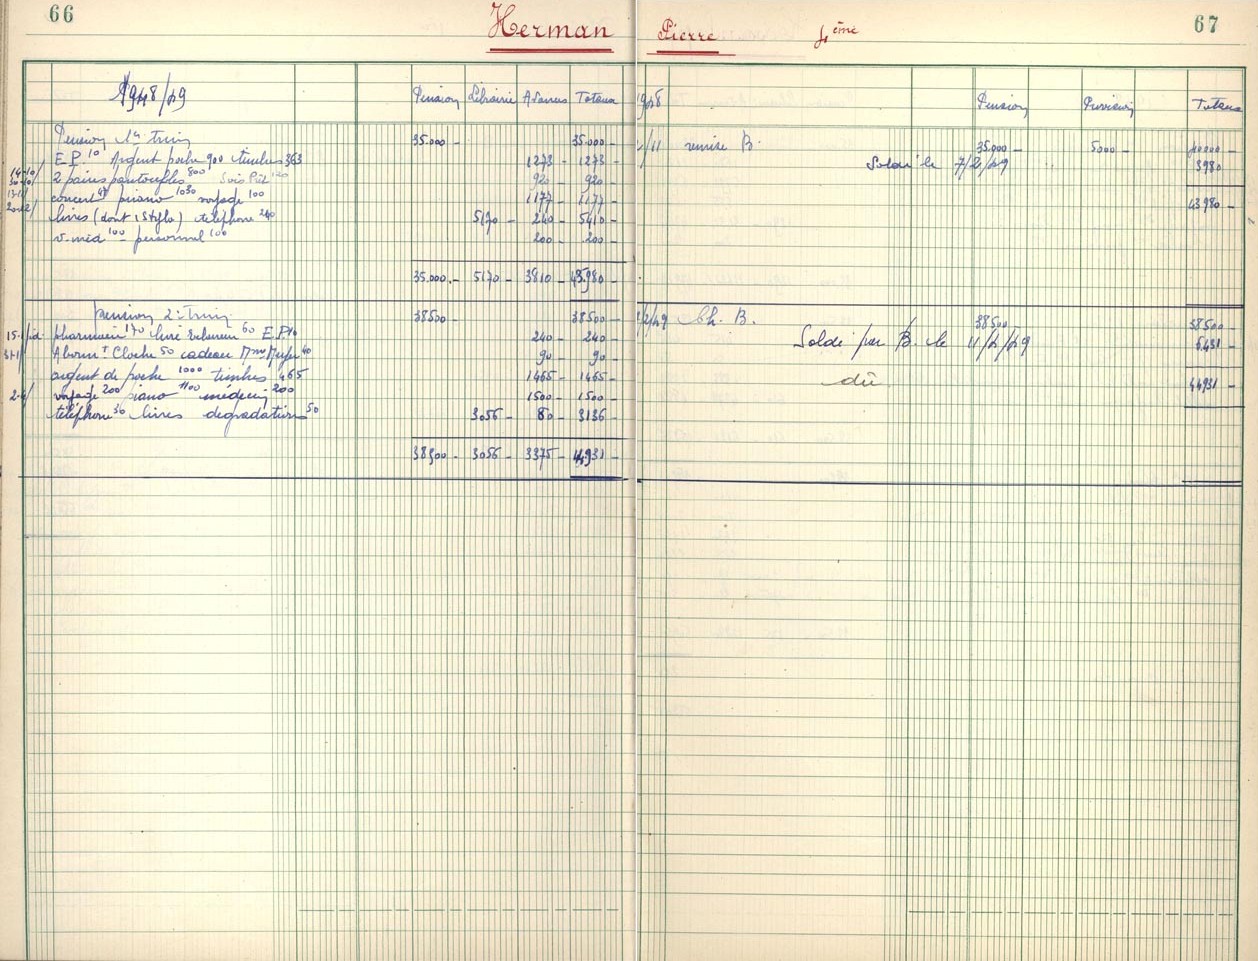 66
Herman Pierre 4ème
67
1948/49 Pension Librairie Avances Totaux
1948 Pension Provision Totaux
Pension 1er trim 35.000 - 35.000 -
E.P. 10 Argent poche 900 timbres 363 1273 - 1273 -
2 paires pantoufles 800 120 920 - 920 -
concert 47 piano 1030 voyage 100 1177 - 1177 -
livres (dont 1 stylo) téléphone 240 5170 - 240 - 5410 -
v. méd 100 - personnel 100 200 - 200 -
35.000.- 5170 - 3810 - 43.980 -
/11 remise B. 35.000 - 5000 - 40000 -
Soldé le 7/2/49 3980
43980 -
Pension 2e trim. 38500 - 38500 -
pharmacie 170 60 E.P. 10 240 - 240 -
Abonnt Cloche 50 cadeau 40 90 - 90 -
argent de poche 1000 timbres 465 1465 - 1465 -
voyage 200 piano 1100 médecin 200 1500 - 1500 -
téléphone 30 livres dégradations 50 3056 - 80 - 3136 -
38500 - 3056 - 3375 - 44931 -
2/49 Ch. B. 38500 - 38500 -
Soldé par B. le 11/2/49 6431 -
dû 44931 -